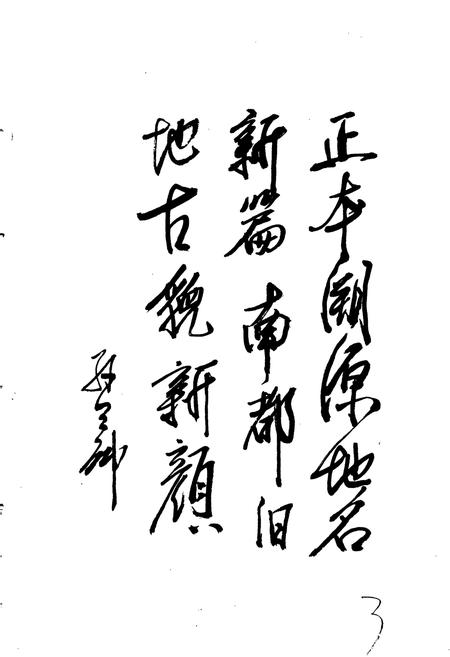 正本溯源地名
新篇 南都旧
地古貌新颜
3